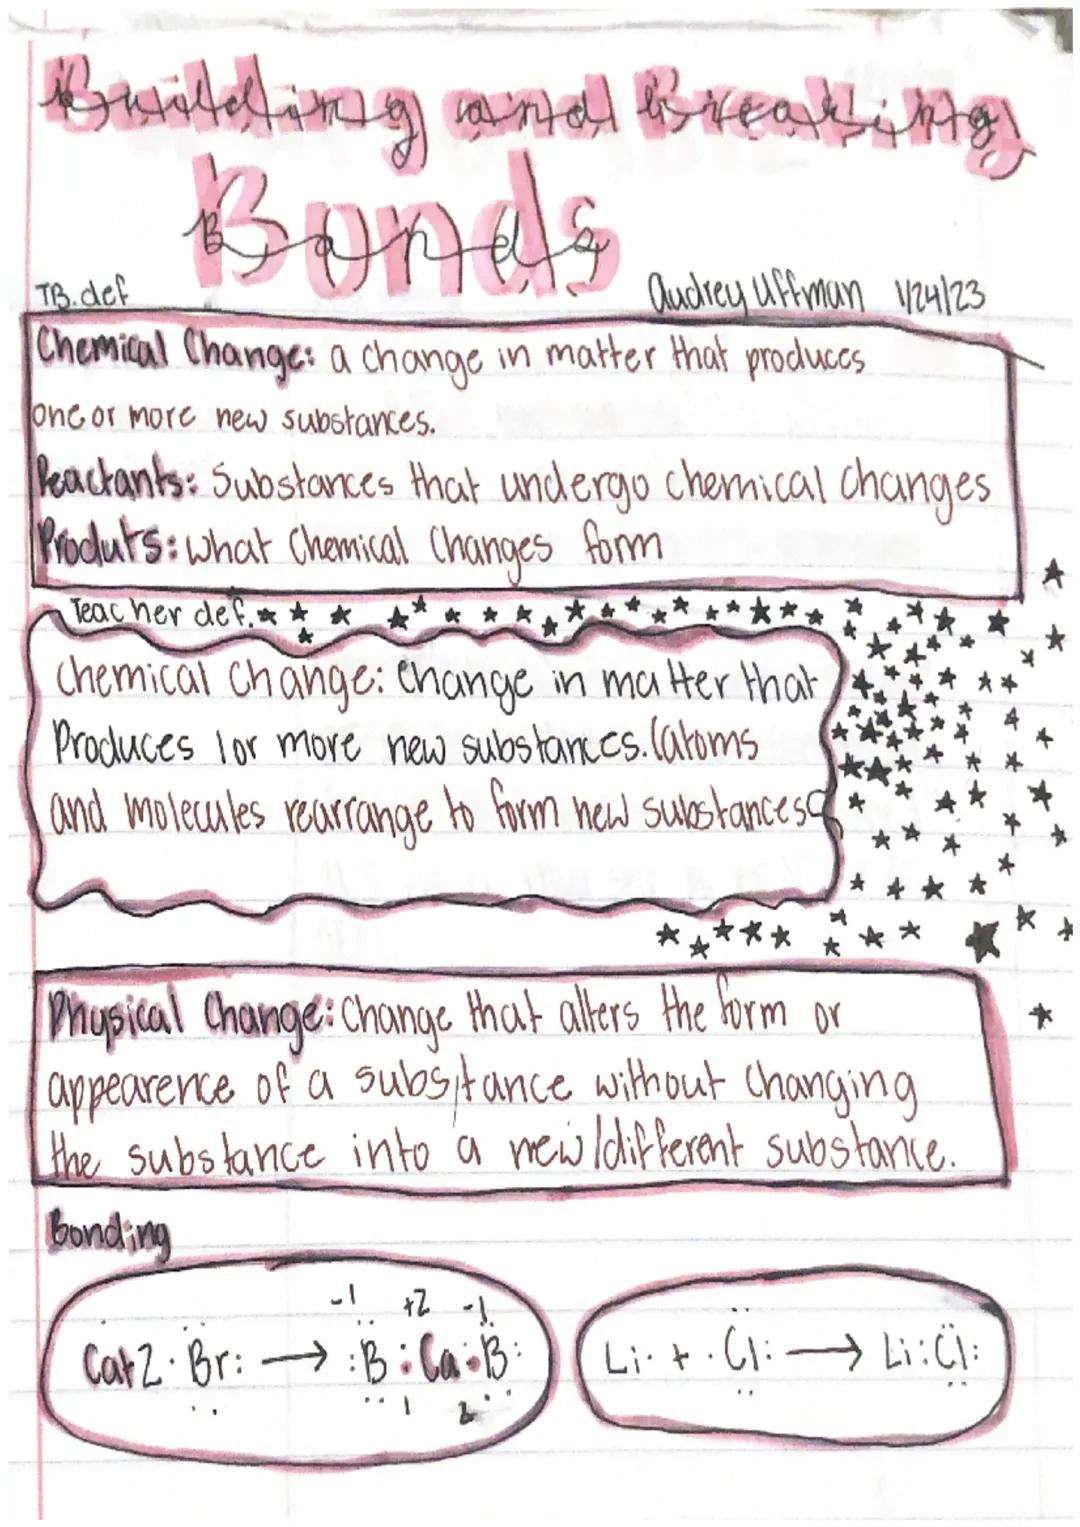 Building and Breaking
Bonds
TB. def
Audrey Uffman 1/24/23
Chemical Change: a change in matter that produces
one or more new substances.
Reactants: Substances that undergo chemical changes
Produts: what Chemical Changes form
Teacher def.
Chemical Change: Change in matter that
Produces 1 or more new substances. (atoms
and molecules rearrange to form new substances)
Physical Change: Change that alters the form or
appearence of a substance without changing
the substance into a new/different substance.
Bonding
-1 +2 -1
Ca+2·Br: → :B:Ca:B:
1 2
Li· + ·Cl: → Li:Cl: